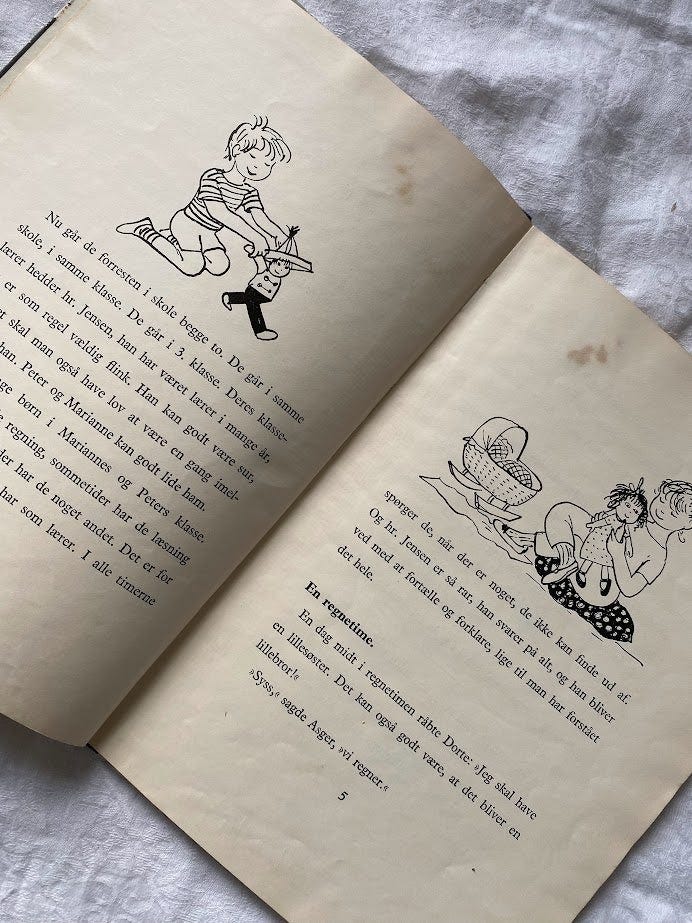 Nu går de forresten i skole begge to. De går i samme
skole, i samme klasse. De går i 3. klasse. Deres klasse-
lærer hedder hr. Jensen, han har været lærer i mange år,
er som regel vældig flink. Han kan godt være sur,
skal man også have lov at være en gang imel-
han. Peter og Marianne kan godt lide ham.
børn i Mariannes og Peters klasse.
regning, sommetider har de læsning
har de noget andet. Det er for
har som lærer. I alle timerne
spørger de, når der er noget, de ikke kan finde ud af.
Og hr. Jensen er så rar, han svarer på alt, og han bliver
ved med at fortælle og forklare, lige til man har forstået
det hele.
En regnetime.
En dag midt i regnetimen råbte Dorte: »Jeg skal have
en lillesøster. Det kan også godt være, at det bliver en
lillebror!«
»Syss,« sagde Asger, »vi regner.«
5